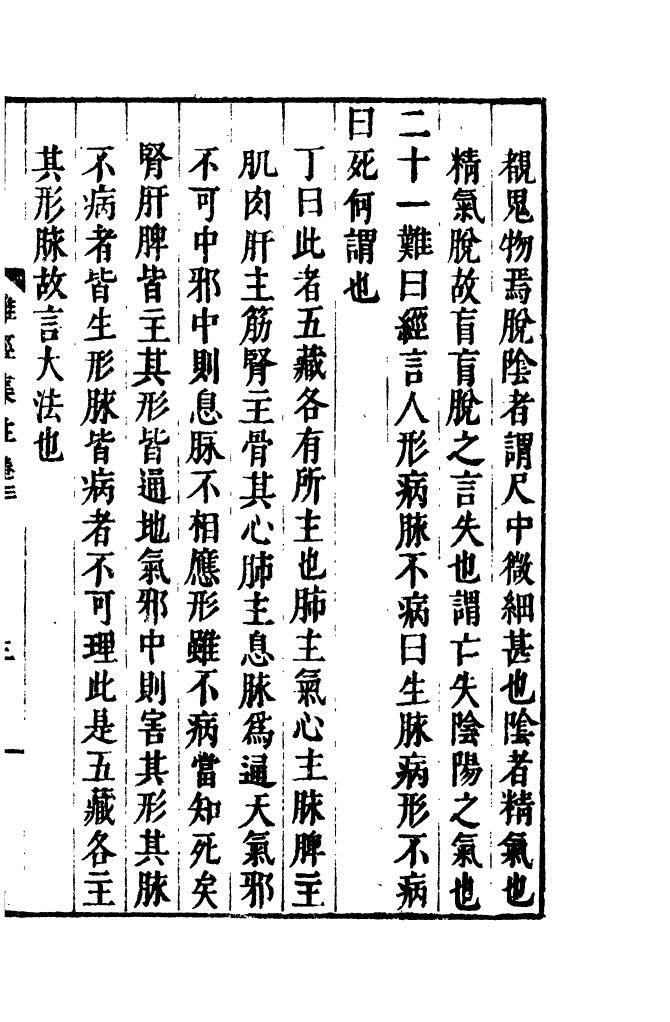 覩鬼物焉脫陰者謂尺中微細甚也陰者精氣也
精氣脫故盲盲脫之言失也謂亡失陰陽之氣也
二十一難曰經言人形病脉不病曰生脉病形不病
曰死何謂也
丁曰此者五藏各有所主也肺主氣心主脉脾主
肌肉肝主筋腎主骨其心肺主息脉爲通天氣邪
不可中邪中則息脉不相應形雖不病當知死矣
腎肝脾皆主其形皆通地氣邪中則害其形其脉
不病者皆生形脉皆病者不可理此是五藏各主
其形脉故言大法也
難經集註卷三